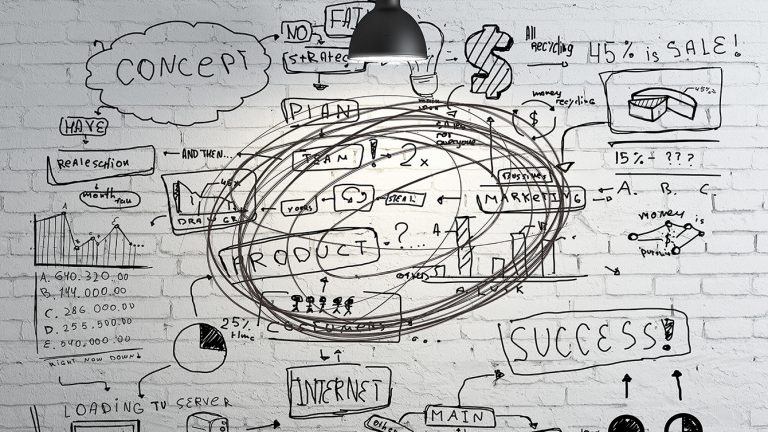 NO
All
Recycling
45% is SALE!
CONCEPT
money
recycling
$
PLAN
45%
HAVE
AND THEN...
TEAM ! 2x
15% - ???
Realesation
A. B. C.
MARKETING
money
is
PRODUCT ?
A
A. 640.320.00
B. 144.000.00
C. 286 000.00
D. 255.500.00
E. 540.000.00
RIGHT NOW DOWN!
25%
time
CUSTOMERS
SUCCESS!
INTERNET
LOADING TU SERVER
MAIN
other